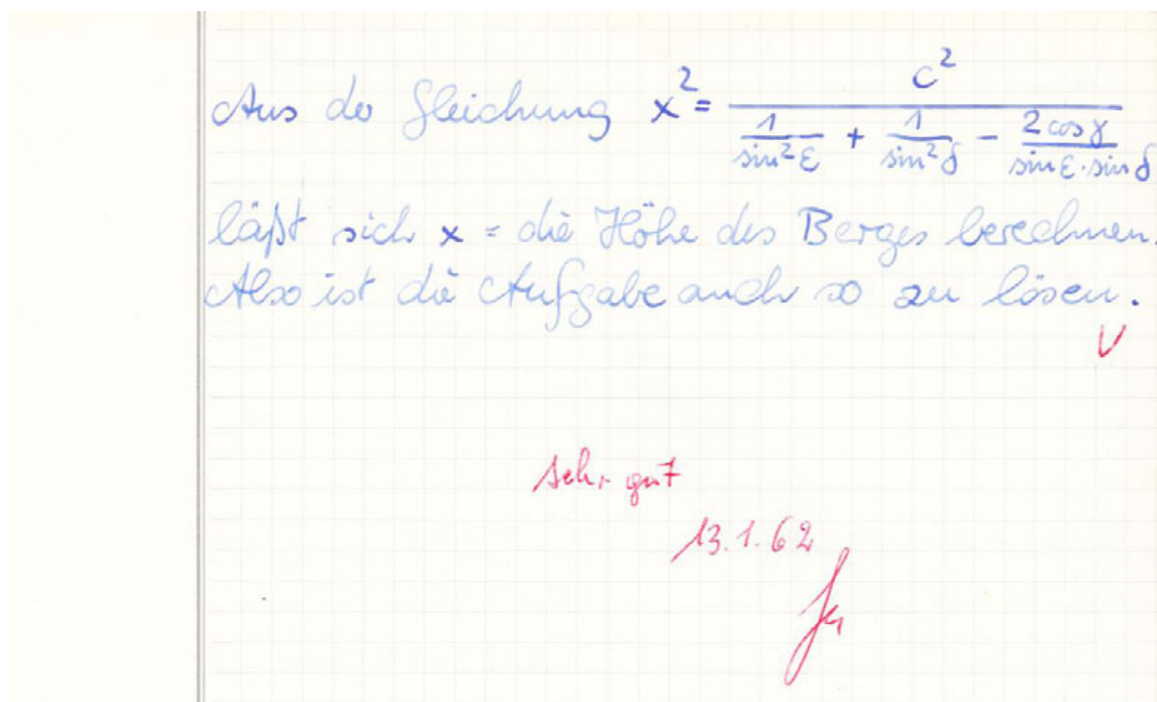 Aus der Gleichung x² = c² / (1/sin²ε + 1/sin²δ - 2 cos γ/(sin ε · sin δ))
läßt sich x = die Höhe des Berges berechnen.
Also ist die Aufgabe auch so zu lösen.
V
sehr gut
13.1.62